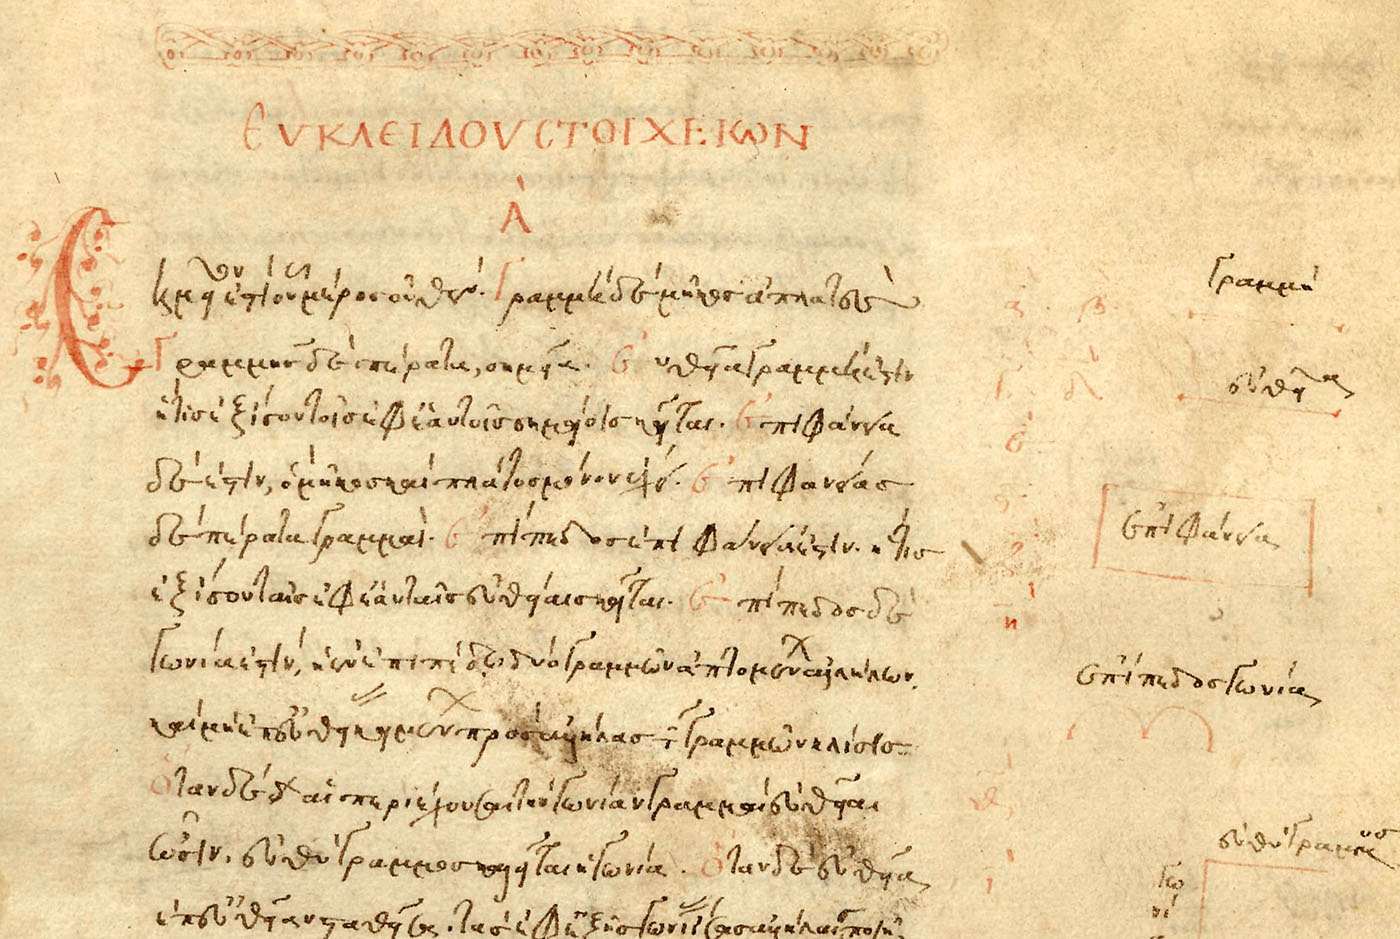 ΕΥΚΛΕΙΔΟΥ ΣΤΟΙΧΕΙΩΝ
Α
μέρος οὐθέν. Γραμμὴ δὲ μῆκος ἀπλατές
Γραμμῆς δὲ πέρατα, σημεῖα. Εὐθεῖα γραμμή ἐστιν
ἥτις ἐξ ἴσου τοῖς ἐφ' ἑαυτῆς σημείοις κεῖται. Ἐπιφάνεια
δέ ἐστιν, ὃ μῆκος καὶ πλάτος μόνον ἔχει. Ἐπιφανείας
δὲ πέρατα γραμμαί. Ἐπίπεδος ἐπιφάνειά ἐστιν. ἥτις
ἐξ ἴσου ταῖς ἐφ' ἑαυτῆς εὐθείαις κεῖται. Ἐπίπεδος δὲ
γωνία ἐστίν, ἡ ἐν ἐπιπέδῳ δύο γραμμῶν ἁπτομένων ἀλλήλων,
καὶ μὴ ἐπ' εὐθείας κειμένων πρὸς ἀλλήλας τῶν γραμμῶν κλίσις
Ὅταν δὲ αἱ περιέχουσαι τὴν γωνίαν γραμμαὶ εὐθεῖαι
ὦσιν, εὐθύγραμμος καλεῖται ἡ γωνία. Ὅταν δὲ εὐθεῖα
ἐπ' εὐθεῖαν σταθεῖσα τὰς ἐφεξῆς γωνίας
γραμμή
εὐθεῖα
ἐπιφάνεια
ἐπίπεδος γωνία
εὐθύγραμμος
γω
νί